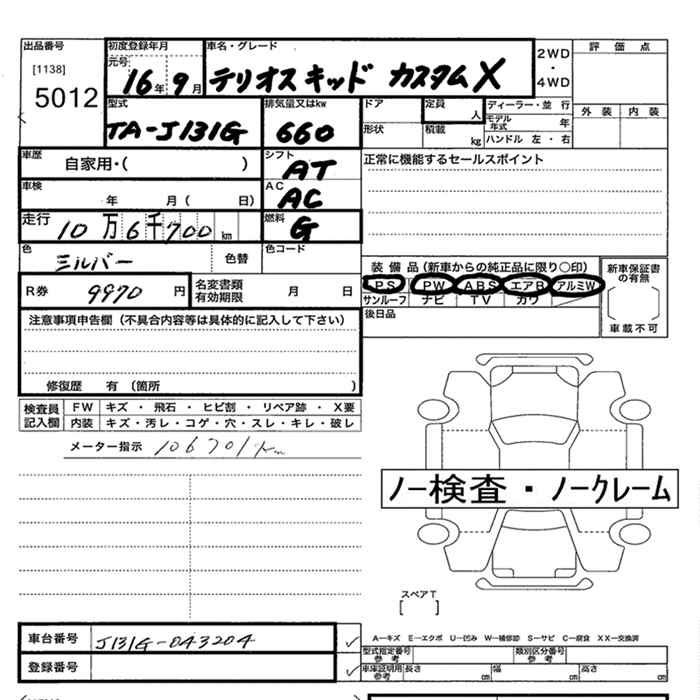 出品番号 初度登録年月 車名・グレード 評価点
[1138] 元号 2WD
5012 16年 9月 テリオスキッド カスタムX ・
4WD
型式 排気量又はkw ドア 定員 ディーラー・並 行 外装 内装
TA-J131G 660 人 モデル年式 年
形状 積載 kg ハンドル 左・右
車歴 シフト 正常に機能するセールスポイント
自家用・( ) AT
車検 AC
年 月( 日) AC
走行 燃料
10万6千700km G
色 色替 色コード
シルバー 装備品(新車からの純正品に限り○印) 新車保証書の有無
R券 9970 円 名変書類有効期限 月 日 PS PW ABS エアB アルミW
サンルーフ ナビ TV カワ
注意事項申告欄(不具合内容等は具体的に記入して下さい) 後日品 車載不可
修復歴 有(箇所 )
検査員記入欄 FW キズ ・ 飛石 ・ ヒビ割 ・ リペア跡 ・ X要
内装 キズ・汚レ・コゲ・穴・スレ・キレ・破レ
メーター指示 106701km
ノー検査・ノークレーム
スペアT
[ ]
車台番号 J131G-043204 A－キズ E－エクボ U－凹み W－補修跡 S－サビ C－腐食 XX－交換済
型式指定番号参考 類別区分番号参考
登録番号 車庫証明用参考 長さ cm 幅 cm 高さ cm